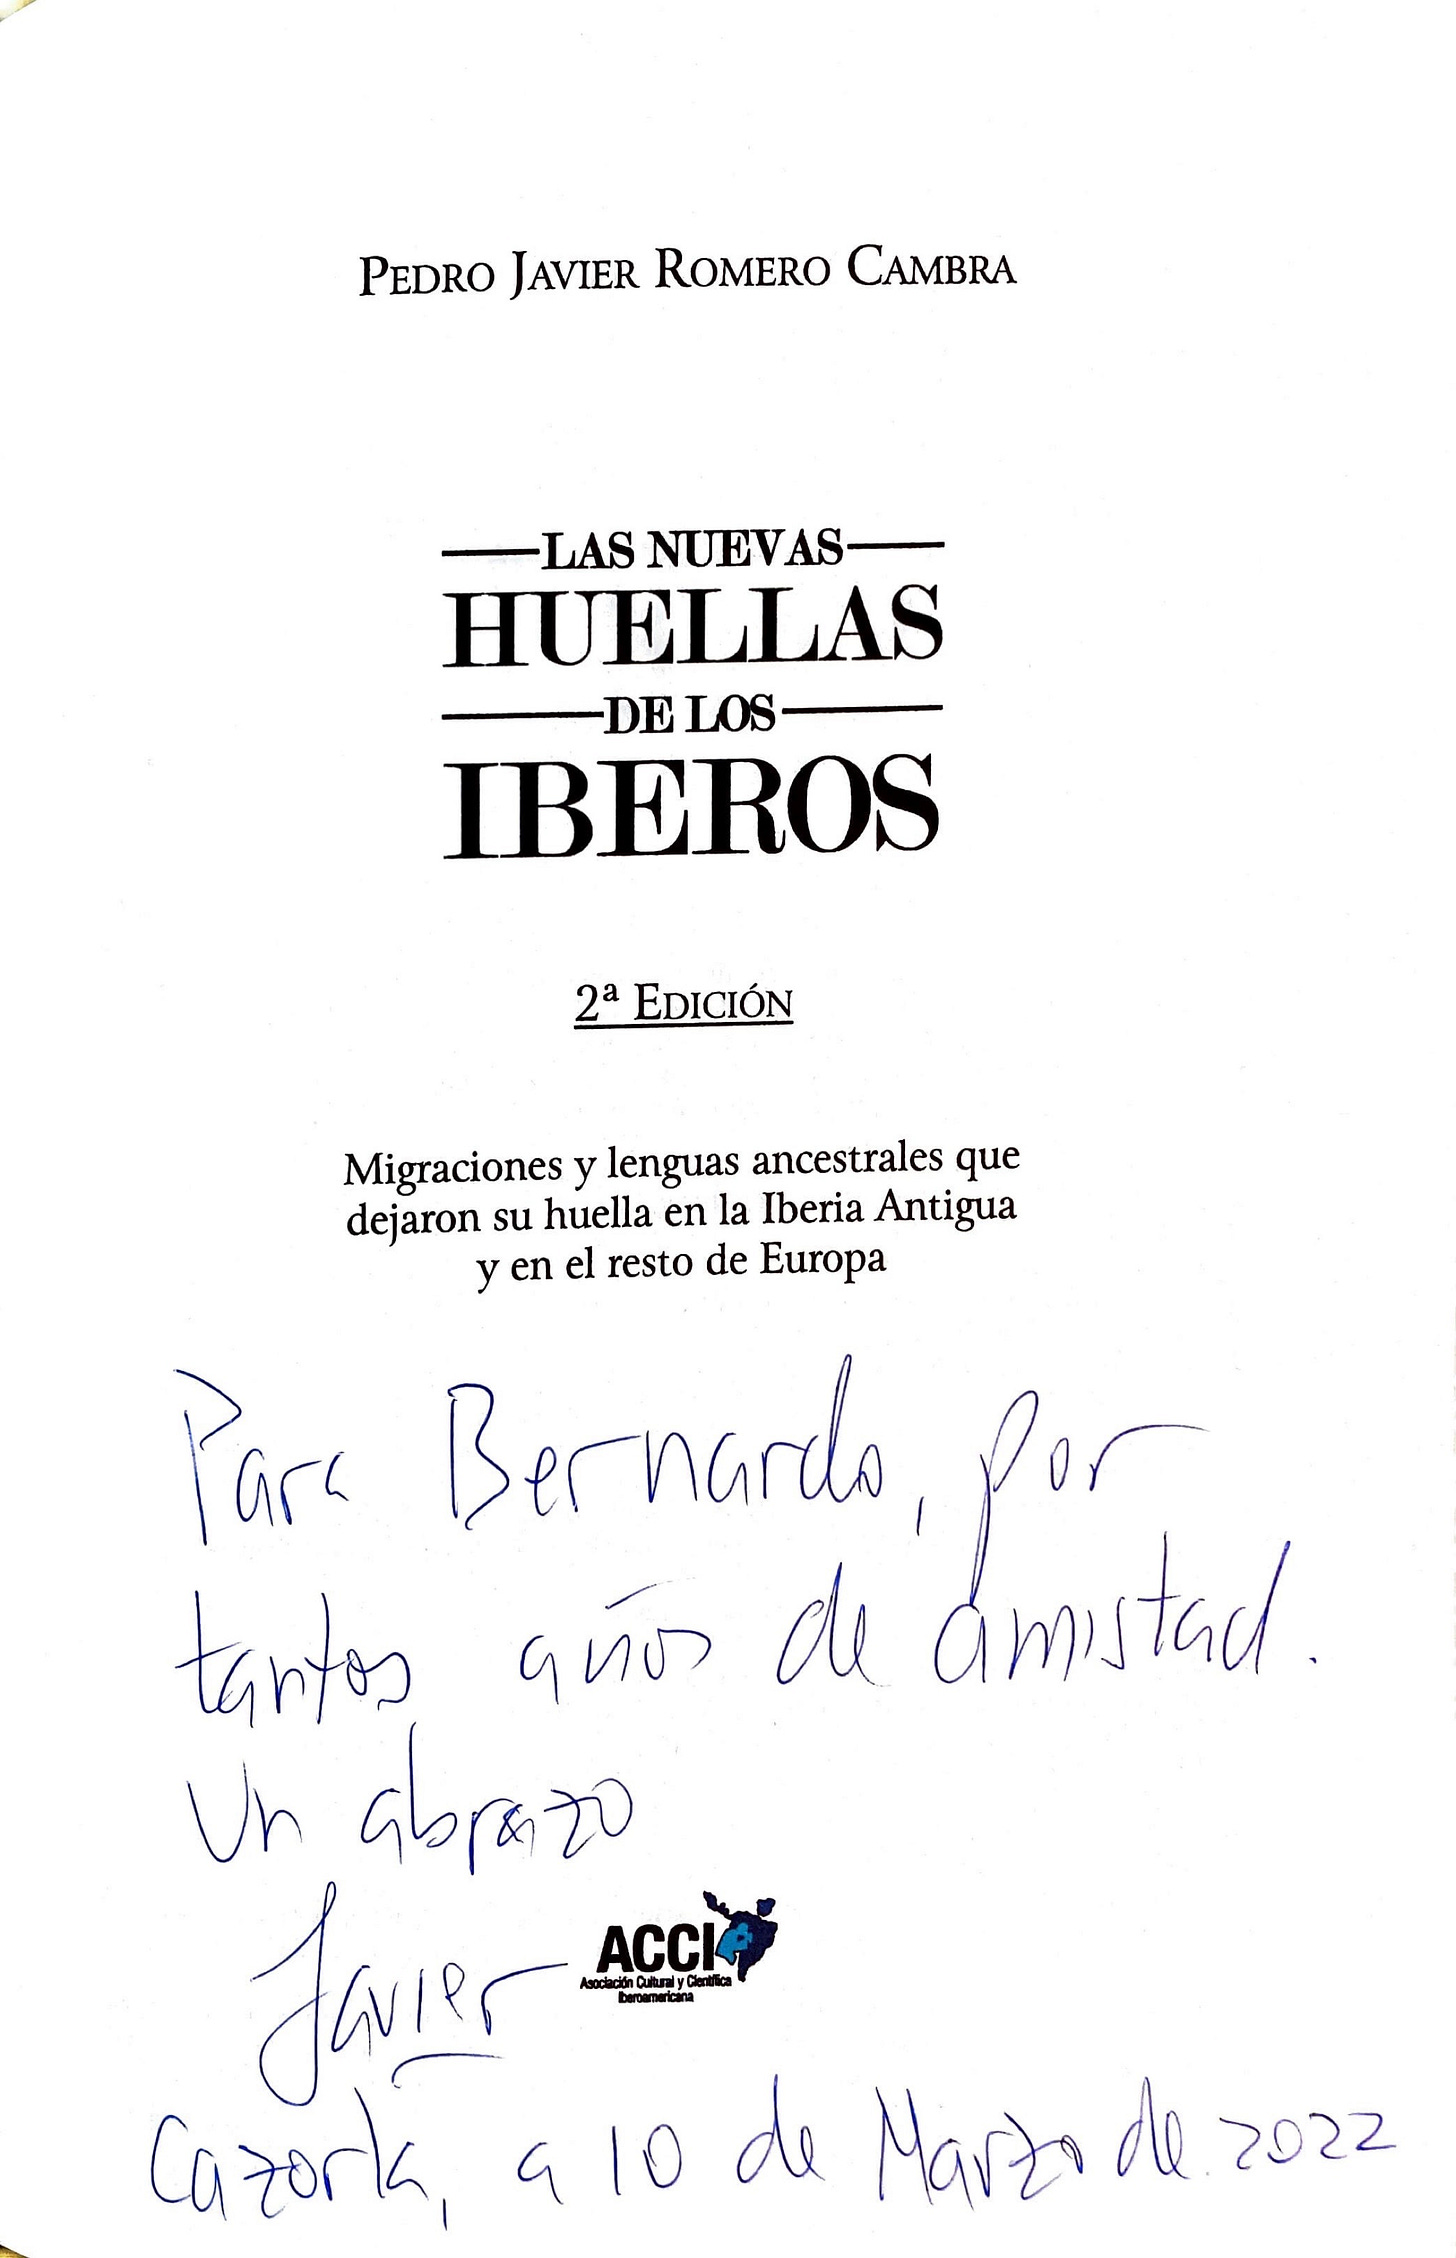 PEDRO JAVIER ROMERO CAMBRA
LAS NUEVAS
HUELLAS
DE LOS
IBEROS
2ª EDICIÓN
Migraciones y lenguas ancestrales que
dejaron su huella en la Iberia Antigua
y en el resto de Europa
Para Bernardo, por
tantos años de amistad.
Un abrazo
Javier
ACCI
Asociación Cultural y Científica
Iberoamericana
Cazorla, a 10 de Marzo de 2022